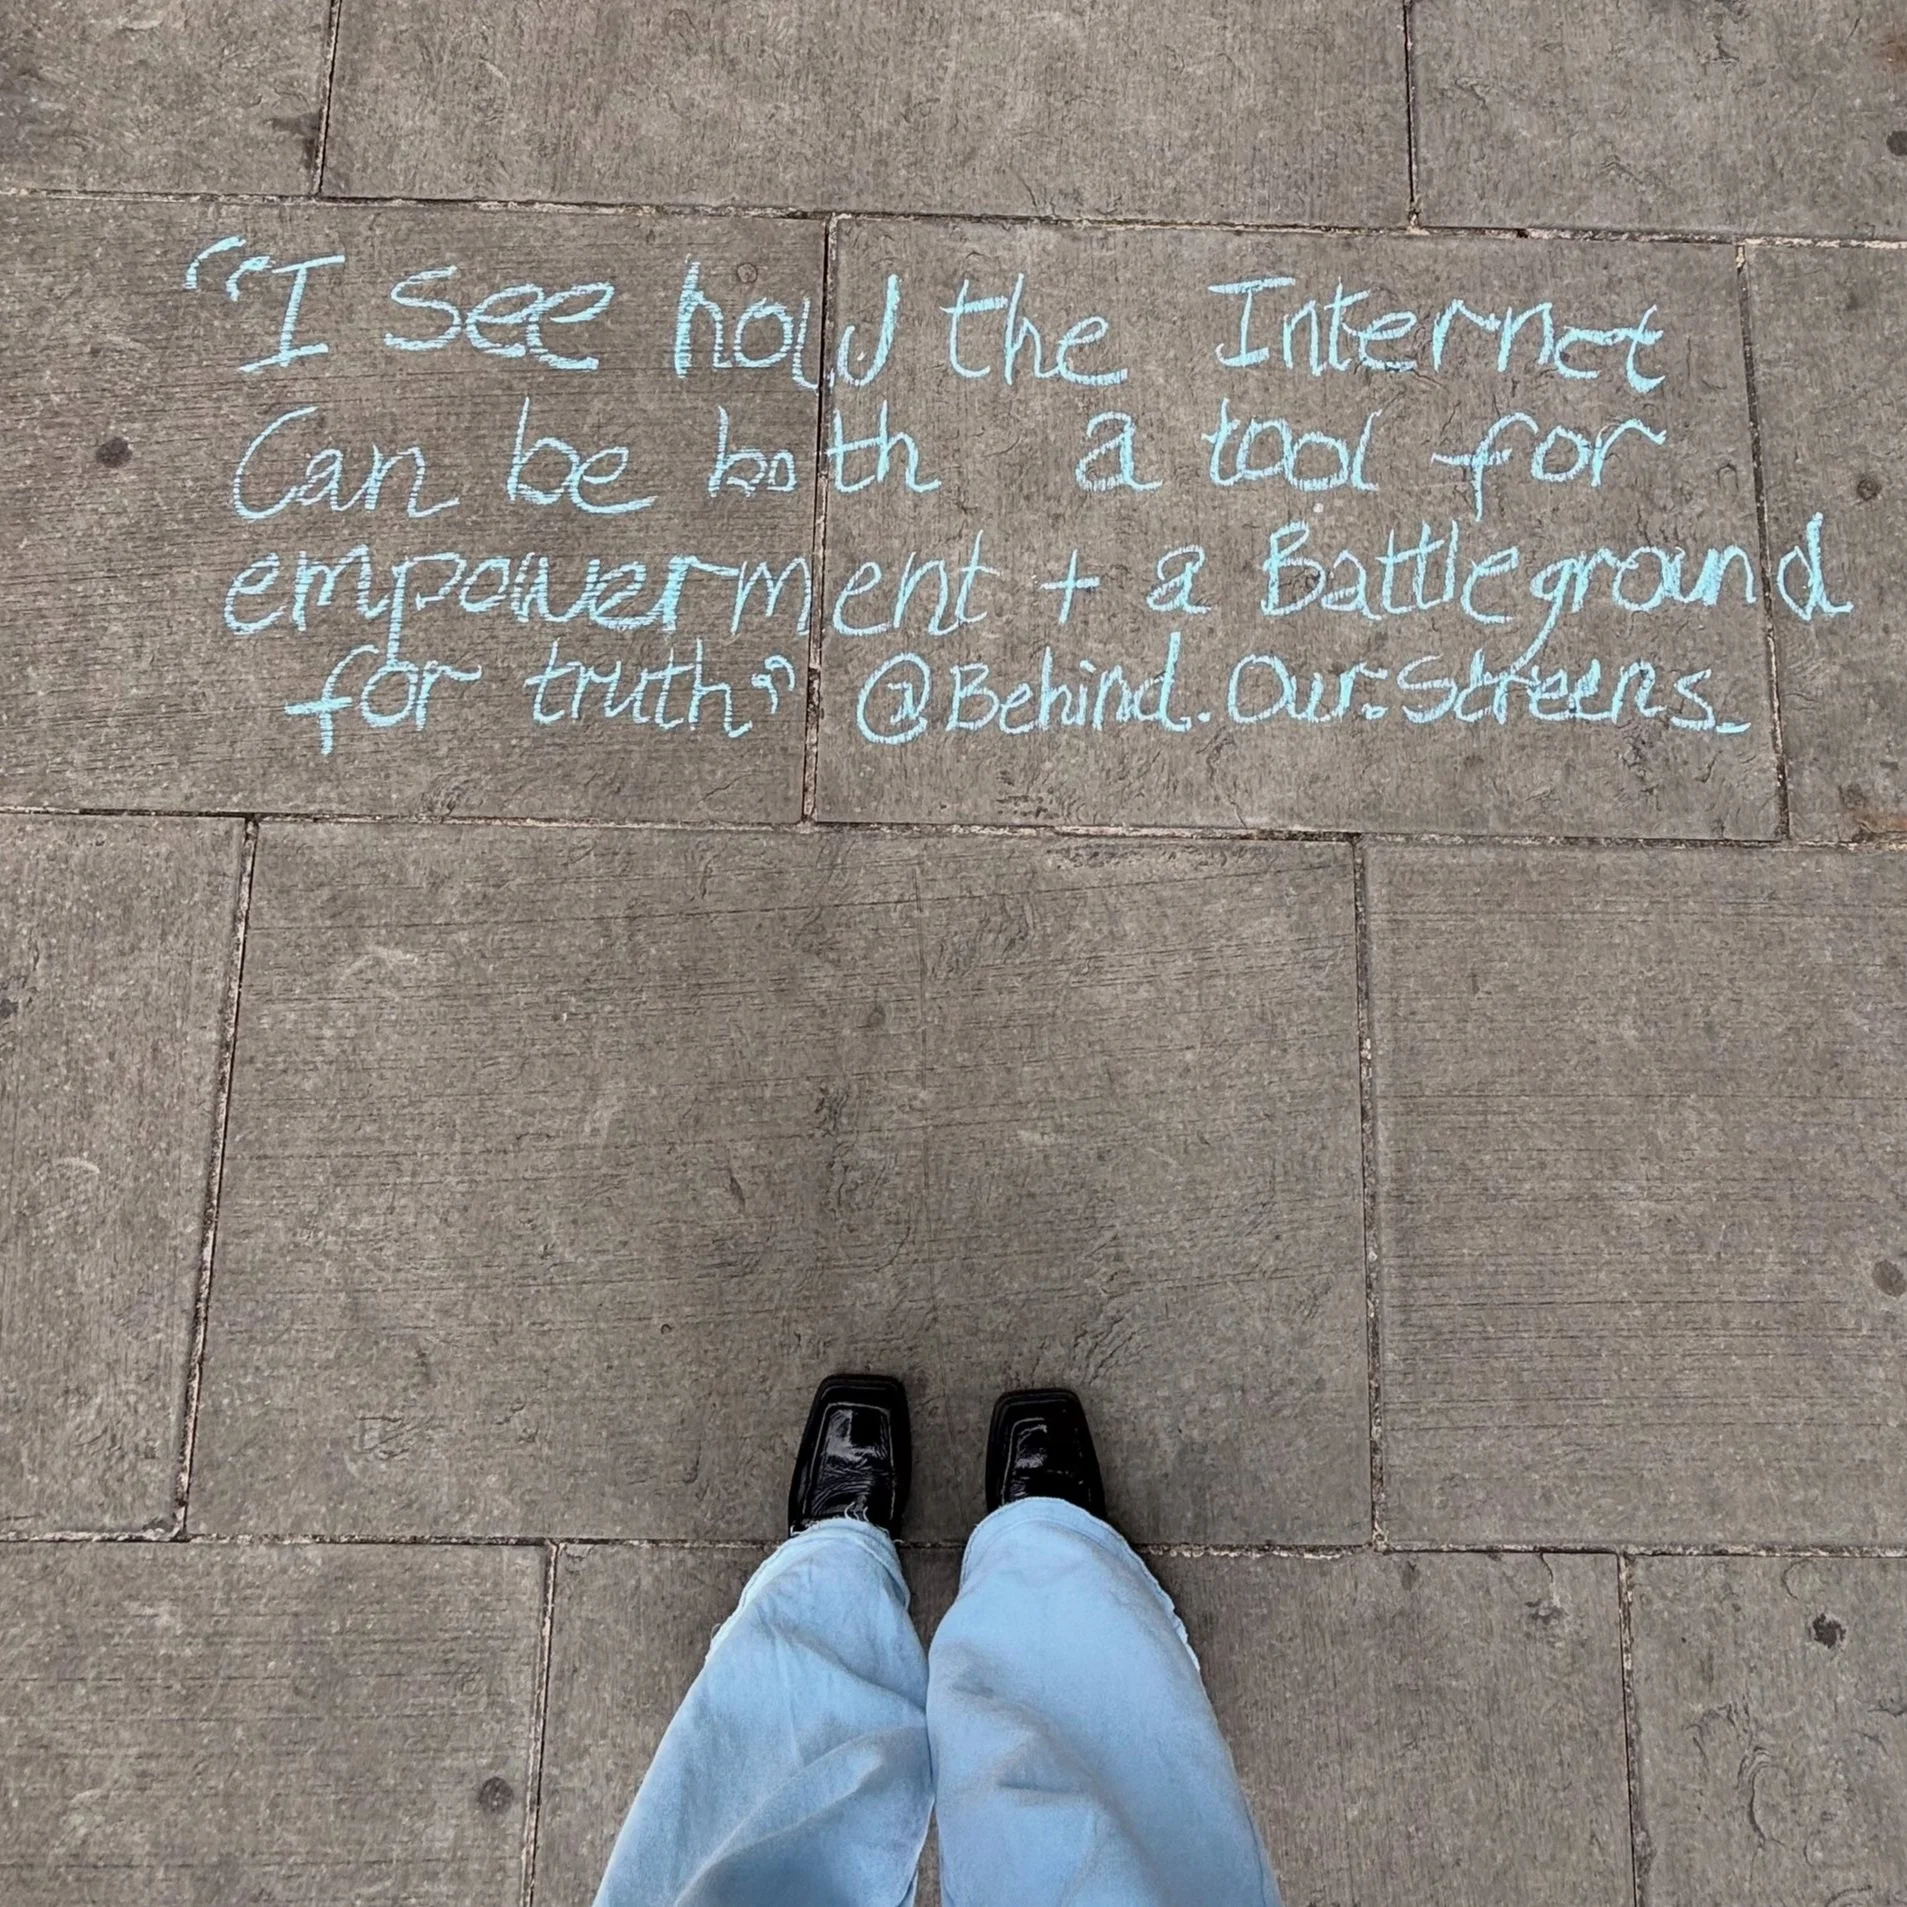 “I See how the Internet
Can be both a tool for
empowerment + a Battleground
for truth” @Behind.Our.Screens_